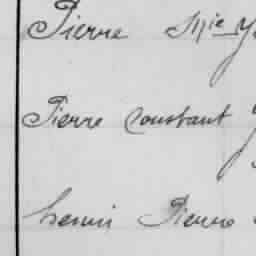 Pierre Mie
Pierre Constant
henri Pierre